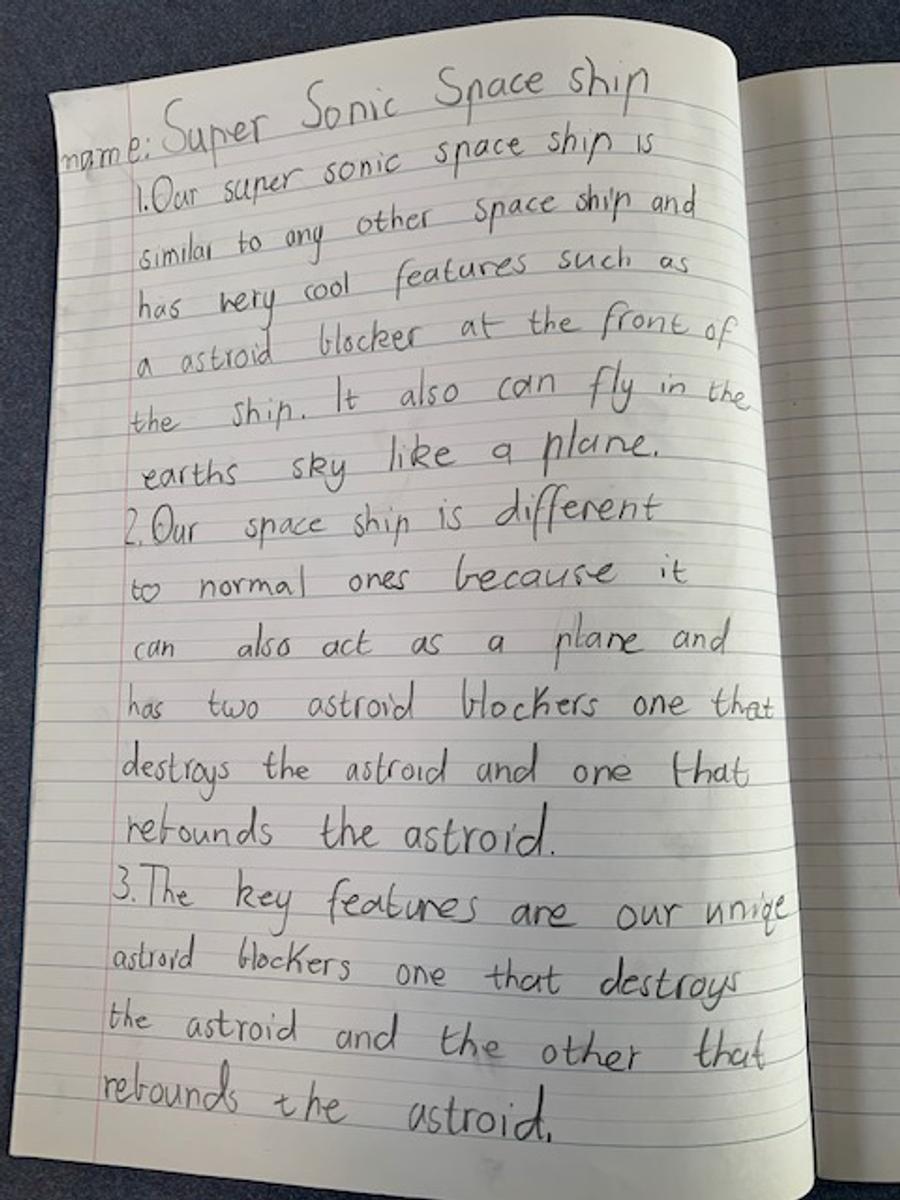 name: Super Sonic Space ship
1.Our super sonic space ship is
similar to any other space ship and
has very cool features such as
a astroid blocker at the front of
the ship. It also can fly in the
earths sky like a plane.
2.Our space ship is different
to normal ones because it
can also act as a plane and
has two astroid blockers one that
destroys the astroid and one that
rebounds the astroid.
3.The key features are our uniqe
astroid blockers one that destroys
the astroid and the other that
rebounds the astroid.